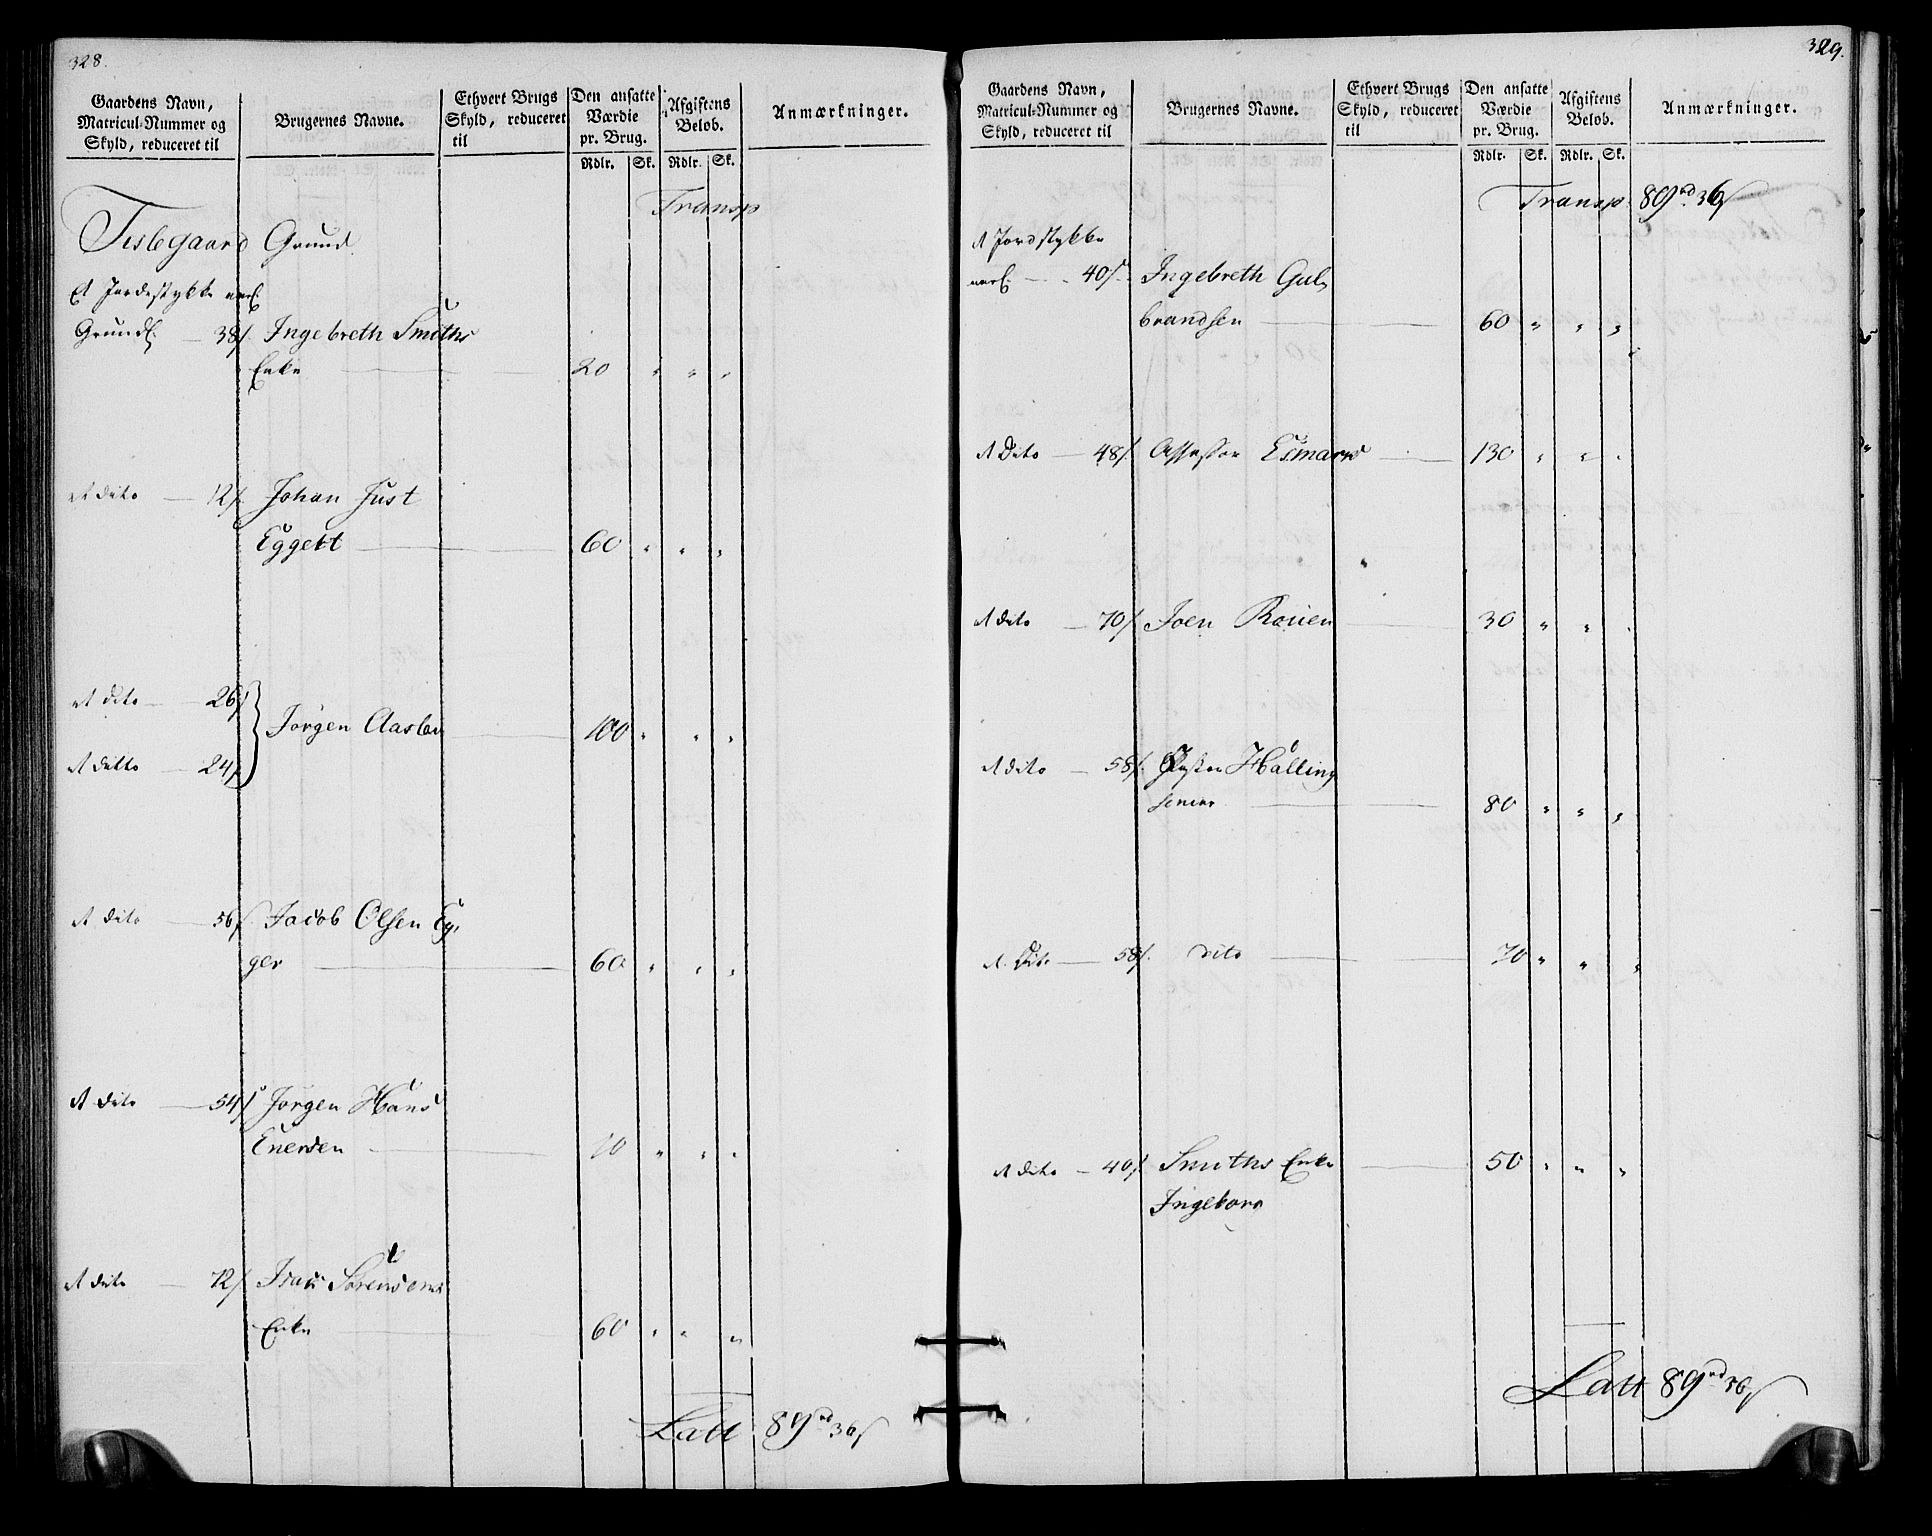 328.
Gaardens Navn,
Matricul-Nummer og
Skyld, reduceret til
Brugernes Navne.
Ethvert Brugs
Skyld, reduceret
til
Den ansatte
Værdie
pr. Brug.
Rdlr. Sk.
Afgiftens
Beløb.
Rdlr. Sk.
Anmærkninger.
Transp
Teslegaard Grund
Et Jordestykke
Grundl. 38/. Ingebreth Smiths
Enke 20 " " "
Et dito 12/. Johan Just
Eggert 60 " " "
Et dito 26/.
Jørgen Aasleu 100 " " "
Et ditto 24/.
Et dito 56/. Jacob Olsen Eg,
ger 60 " " "
Et dito 54/. Jørgen Hans
Enersen 10 " " "
Et dito 72/. Isaac Sørensens
Enke 60 " " "
Latt 89rd 36/
329.
Gaardens Navn,
Matricul-Nummer og
Skyld, reduceret til
Brugernes Navne.
Ethvert Brugs
Skyld, reduceret
til
Den ansatte
Værdie
pr. Brug.
Rdlr. Sk.
Afgiftens
Beløb.
Rdlr. Sk.
Anmærkninger.
Transp 89rd 36/
Et Jordstykke
40/. Ingebreth Gul,
brandsen 60 " " "
Et Dito 48/. Assessor Esmark 130 " " "
Et dito 70/. Joen Rouen 30 " " "
Et dito 58/. Halling
senior 80 " " "
Et Dito 58/. dito 70 " " "
Et dito 40/. Smiths Enke 50 " " "
Ingeborr
Latt 89rd 36/